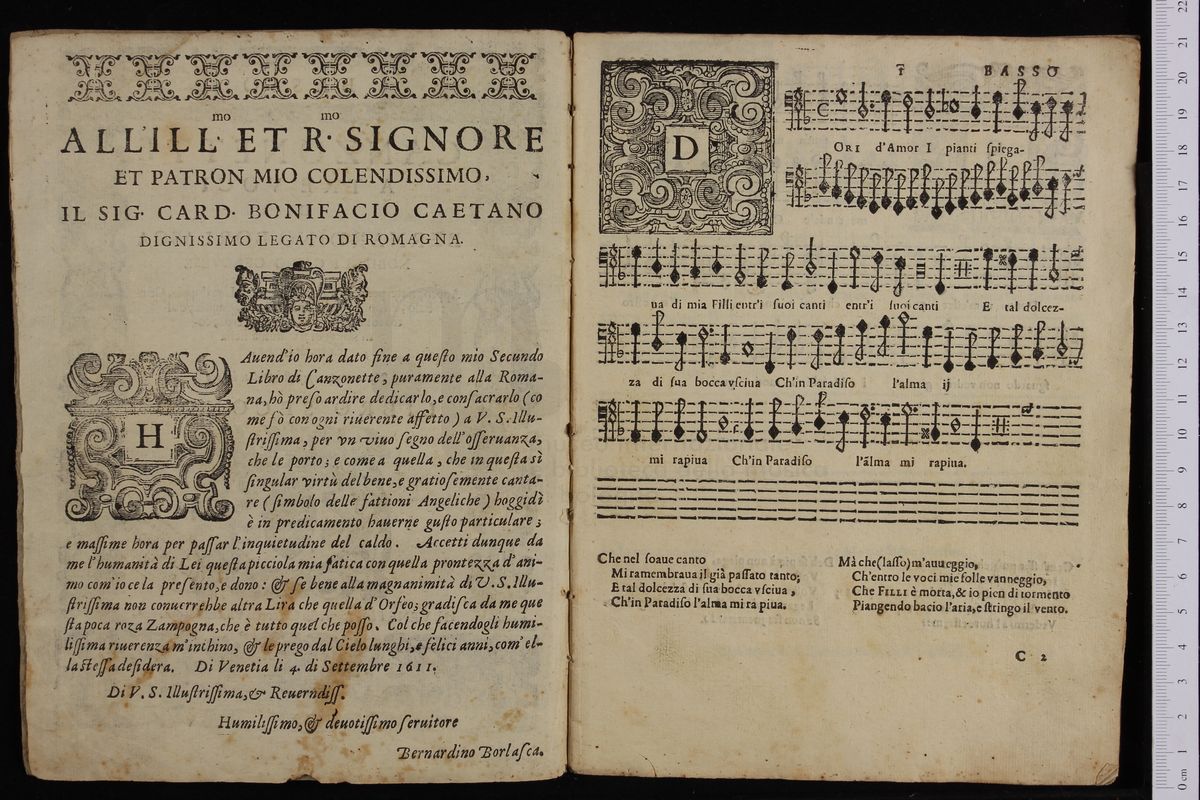 mo mo
ALL'ILL· ET R· SIGNORE
ET PATRON MIO COLENDISSIMO,
IL SIG· CARD· BONIFACIO CAETANO
DIGNISSIMO LEGATO DI ROMAGNA.
H
Auend'io hora dato fine a queſto mio Secundo
Libro di Canzonette, puramente alla Roma-
na, hò preſo ardire dedicarlo, e conſacrarlo (co
me fò con ogni riuerente affetto) a V. S. Illu-
ſtriſſima, per vn viuo ſegno dell'oſſeruanza,
che le porto; e come a quella, che in queſta sì
ſingular virtù del bene, e gratioſemente canta-
re (ſimbolo delle fattioni Angeliche) hoggidì
è in predicamento hauerne guſto particulare;
e maſſime hora per paſſar l'inquietudine del caldo. Accetti dunque da
me l'humanità di Lei queſta picciola mia fatica con quella prontezza d'ani-
mo com'io ce la preſento, e dono: & ſe bene alla magnanimità di V. S. Illu-
ſtriſſima non conuerrebbe altra Lira che quella d'Orfeo; gradiſca da me que
ſta poca roza Zampogna, che è tutto quel che poſſo. Col che facendogli humi-
liſſima riuerenza m'inchino, & le prego dal Cielo lunghi, e felici anni, com' el-
la ſteſſa deſidera. Di Venetia li 4. di Settembre 1611.
Di V. S. Illuſtriſſima, & Reuerndiſſ.
Humiliſſimo, & deuotiſſimo ſeruitore
Bernardino Borlaſca.
BASSO
D
ORI d'Amor I pianti ſpiega-
ua di mia Filli entr'i ſuoi canti entr'i ſuoi canti E tal dolcez-
za di ſua bocca vſciua Ch'in Paradiſo l'alma ij
mi rapiua Ch'in Paradiſo l'alma mi rapiua.
Che nel ſoaue canto
Mi ramembraua il già paſſato tanto;
E tal dolcezza di ſua bocca vſciua,
Ch'in Paradiſo l'alma mi ra piua.
Mà che (laſſo) m'auueggio,
Ch'entro le voci mie folle vanneggio,
Che FILLI è morta, & io pien di tormento
Piangendo bacio l'aria, e ſtringo il vento.
C 2
0 cm 1 2 3 4 5 6 7 8 9 10 11 12 13 14 15 16 17 18 19 20 21 22